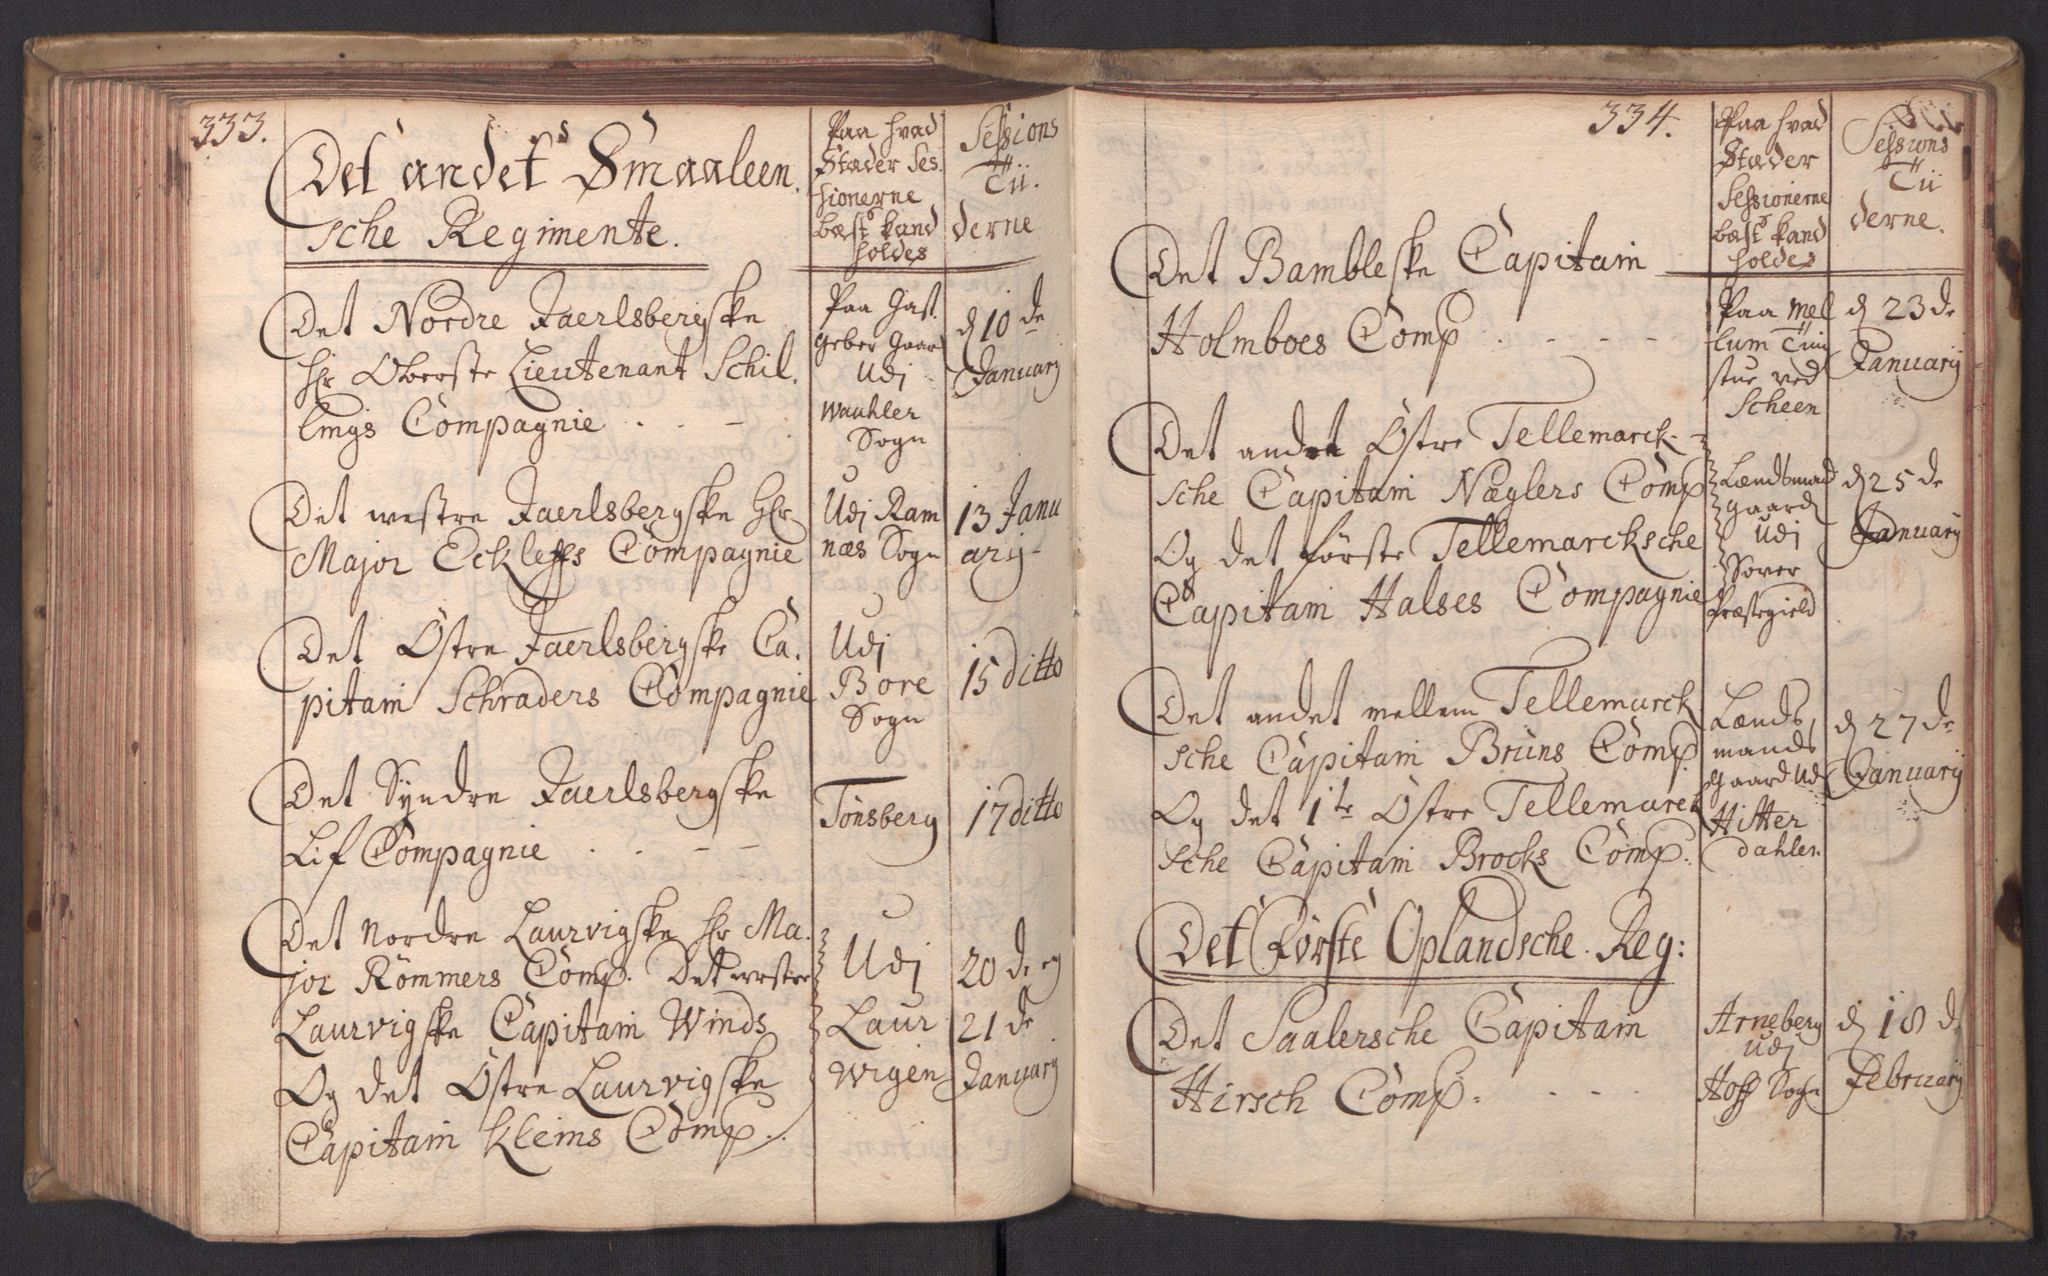 333.
Det andet Smaaleen.
sche Regimente.
Paa hvad
Stæder Ses.
sionerne
bæst kand
holdes
Sessions
Tii.
derne
Det Nordre Jaerlsbergske
Hr Oberste Lieutenant Schil.
lings Compagnie . . - -
Paa Gast.
geber Gaar
Udj
Wauhler
Sogn
d 10 de
January
Det westre Jaerlsbergske Hr
Major Eckleffs Compagnie
Udj Ram
næs Sogn
13 Janu
ary -
Det Östre Jaerlsbergske Ca.
pitain Schraders Compagnie
Udj
Bore
Sogn
15 Ditto
Det Syndre Jaerlsbergske
Lif Compagnie . . - -
Tönsberg
17 ditto
Det Nordre Laurvigske Hr Ma.
jor Römmers Comp. Det westre
Laurvigske Capitain Winds
Og det Östre Laurvigske
Capitain Kleins Comp.
Udj
Laur
wigen
20 de og
21 de
January
334.
Paa hvad
Stæder
Sessionerne
bæst kand
holdes
Sessions
Tii
derne.
Det Bambleske Capitain
Holmboes Comp . - - -
Paa Mel
lum Ting
stue ved
Scheen
d 23 de
January
Det andet Östre Tellemarck-
sche Capitain Næglers Comp
Og det förste Tellemarcksche
Capitain Halses Compagnie
Lændsmand
gaard
Udj
Sover
Præstegield
d 25 de
January
Det andet mellem Tellemarck
sche Capitain Bruns Comp
Og det 1te Östre Tellemarck
sche Capitain Brocks Comp.
Lænds
mands
Gaard Udj
Hitter
dahlen
d 27 de
January
Det Förste Oplandsche Reg:
Det Saalersche Capitain
Hirsch Comp. . - -
Arneberg
Udj
Hoff Sogn
d 18 de
February